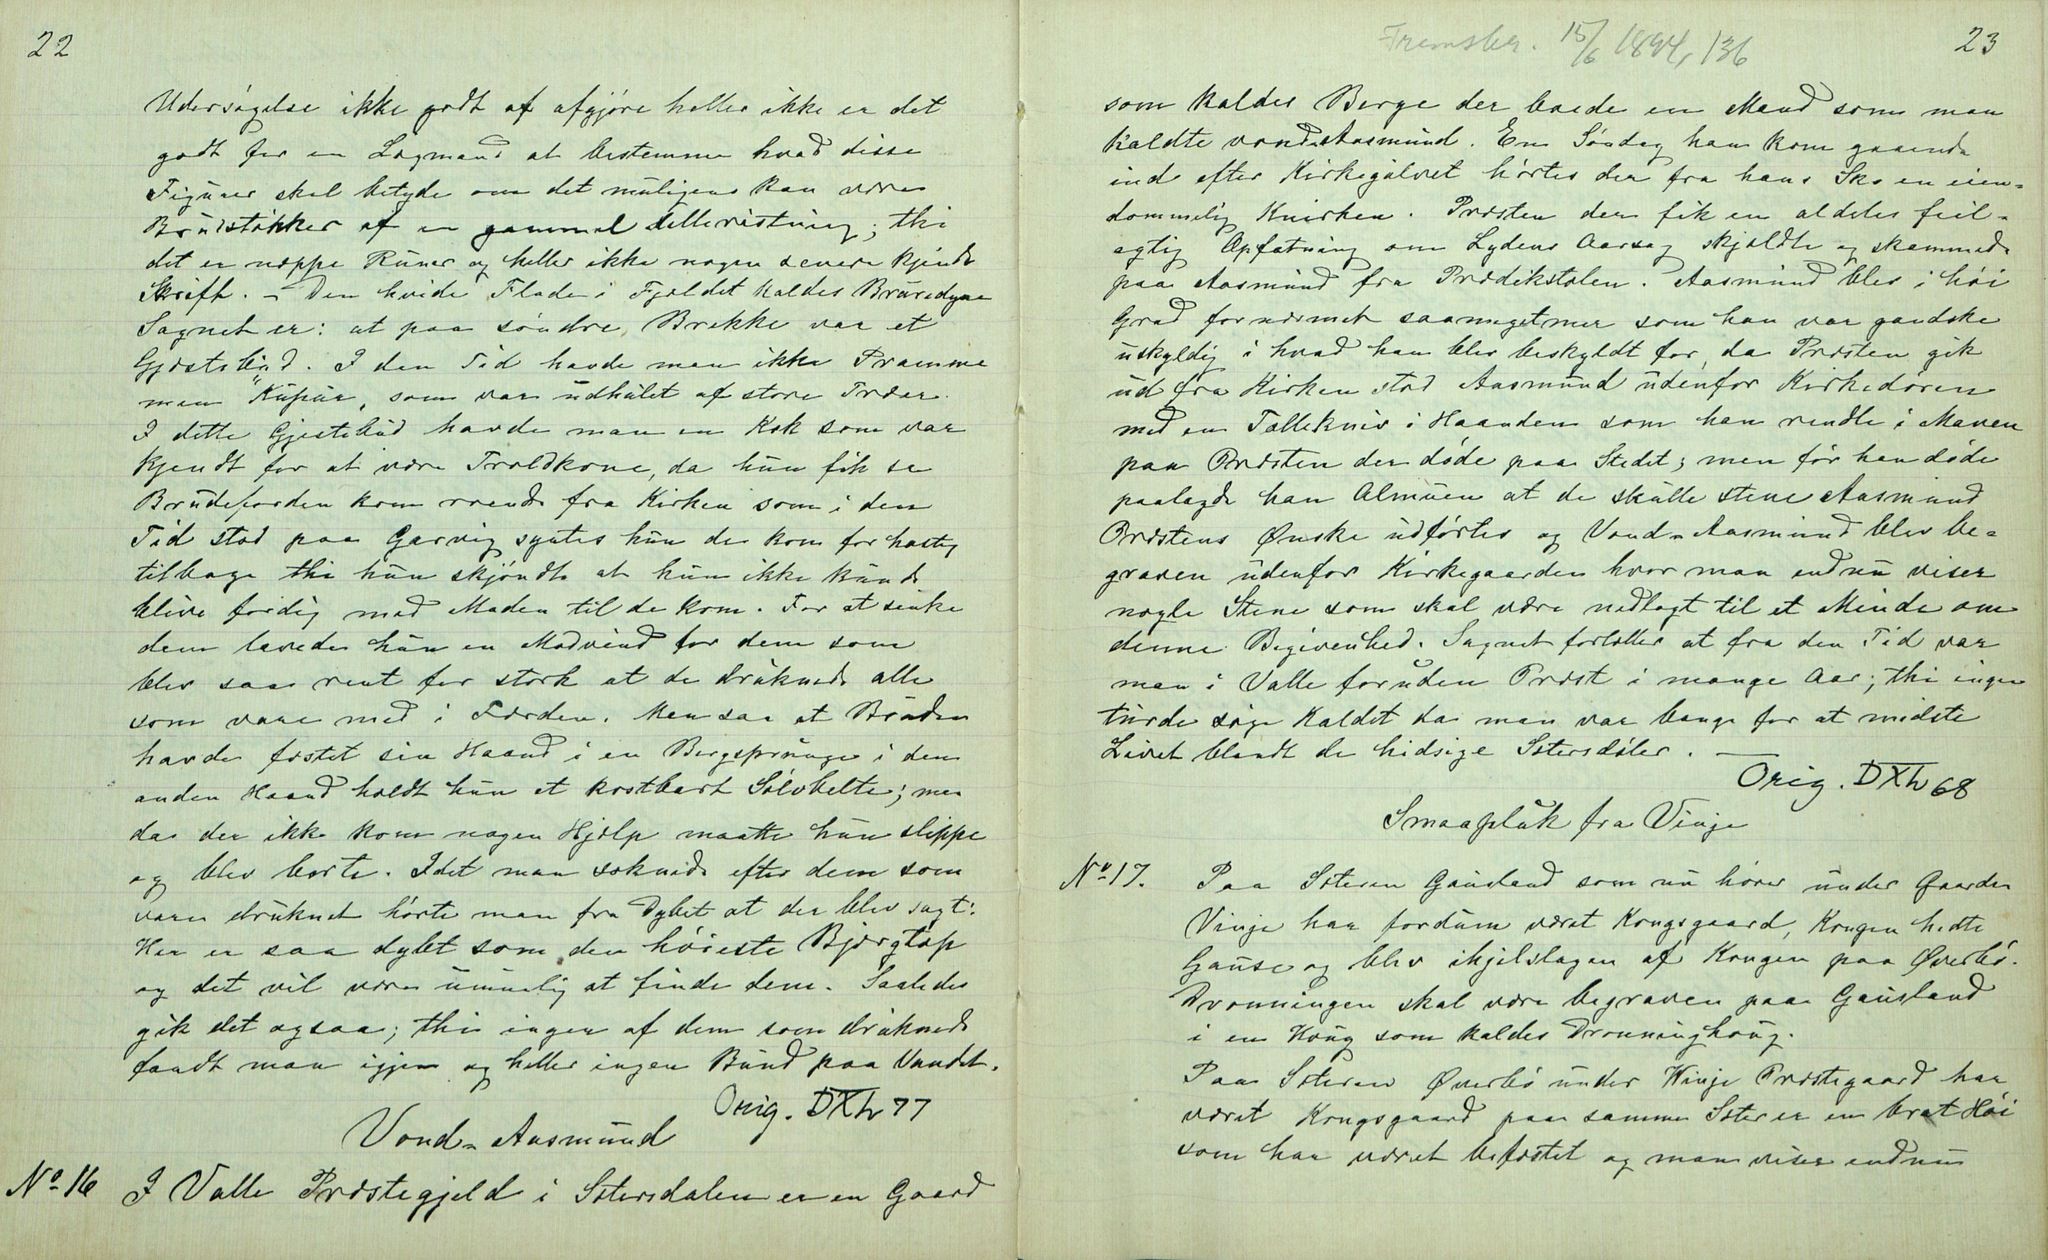 22
Udersøgelse ikke godt af afgjøre heller ikke er det
godt for en Lægmand at bestemme hvad disse
Figurer skal betyde om det muligens kan være
Brudstøkker af en gammel Helleristning; thi
det er neppe Runer og heller ikke nogen senere kjendt
Skrift. – Den hvide Flade i Fjeldet kaldes Bruredyna
Sagnet er: at paa søndre Brekke var et
Gjæstebud. I den Tid havde man ikke Pramme
men "Kupur, som var udhulet af store Træer.
I dette Gjestebud havde man en Kok som var
kjendt for at være Troldkone, da hun fik se
Brudeferden kom roende fra Kirken som i den
Tid stod paa Garvig syntes hun de kom for hastig
tilbage thi hun skjøndte at hun ikke kunde
blive færdig med Maden til de kom. For at sinke
dem lavede hun en Modvind for dem som
blev saa rent for sterk at de druknede alle
som vare med i Færden. Men saa at Bruden
havde fæstet sin Haand i en Bergsprunge i den
anden Haand holdt hun et kostbart Sølvbelte; men
da der ikke kom nogen Hjælp maatte hun slippe
og blev borte. Idet man soknede efter dem som
vare druknet hørte man fra Dybet at der blev sagt:
Her er saa dybt som den høieste Bjergtop
og det vil være umuelig at finde dem. Saaledes
gik det ogsaa; thi ingen af dem som druknede
fandt man igjen og heller ingen Bund paa Vandet.
Orig. DXh 77
Vond-Aasmund
No 16 I Valle Præstegjeld i Sætersdalen er en Gaard
Fremsber. 15/6 1894, 136
23
som kaldes Berge der boede en Mand som man
kaldte vond-Aasmund. En Søndag han kom gaaende
ind efter Kirkegulvet hørtes der fra hans Sko en eien-
dommelig Knirken. Præsten der fik en aldeles feil-
agtig Opfatning om Lydens Aarsag skjældte og skammede
paa Aasmund fra Prædikstolen. Aasmund blev i høi
Grad fornærmet saameget mer som han var gandske
uskyldig i hvad han blev beskyldt for, da Præsten gik
ud fra Kirken stod Aasmund udenfor Kirkedøren
med en Tollekniv i Haanden som han rendte i Maven
paa Præsten der døde paa Stedet; men før han døde
paalagde han Almuen at de skulle stene Aasmund
Præstens Ønske udførtes og Vond-Aasmund blev be-
graven udenfor Kirkegaarden hvor man endnu viser
nogle Stene som skal være nedlagt til et Minde om
denne Begivenhed. Sagnet fortæller at fra den Tid var
man i Valle foruden Præst i mange Aar; thi ingen
turde søge Kaldet da man var bange for at midste
Livet blandt de hidsige Sætersdøler. —
Orig. DXh 68
Smaapluk fra Vinje
No 17. Paa Sæteren Gausland som nu hører under Gaarden
Vinje har fordum været Kongsgaard, Kongen hedte
Gause og blev ihjelslagen af Kongen paa Øverbø.
Dronningen skal være begraven paa Gausland
i en Houg som kaldes Dronninghoug.
Paa Sæteren Øverbø under Vinje Præstegaard har
været Kongsgaard paa samme Sæter er en brat Høi
som har været befæstet og man viser endnu